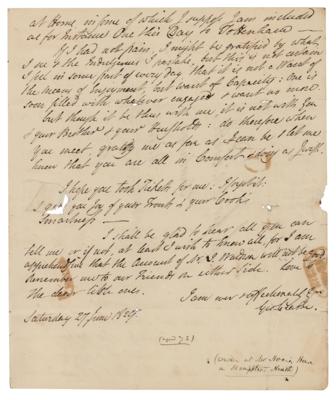 at Home in some of which I suppose I am included
as for Instance One this Day to Tottenham —
If I had not pain, I might be gratified by what
I see & the Indulgences I partake, but this is not certain
I feel in some part of every day that it is not a Want of
the means of Enjoyment, but want of Capacity: One is
soon filled with whatever engages & want no more.
but though it be thus with me, it is not with you
& your Brother & your Households: do therefore when
you meet gratify me as far as I can be & let me
know that you are all in Comfort
I hope you took Tickets for me:
I give you Joy of your Trouts & your Cook
I shall be glad to hear all you can
tell me or if not, at least I wish to know all, for I am
apprehensive that the account of Mr. Watson will not be Good
Remember me to our Friends on either Side. Love
the dear little ones.
I am ever affectionately
Geo Crabbe
Saturday 27 June
at Mr Hoare's House
Hampstead Heath